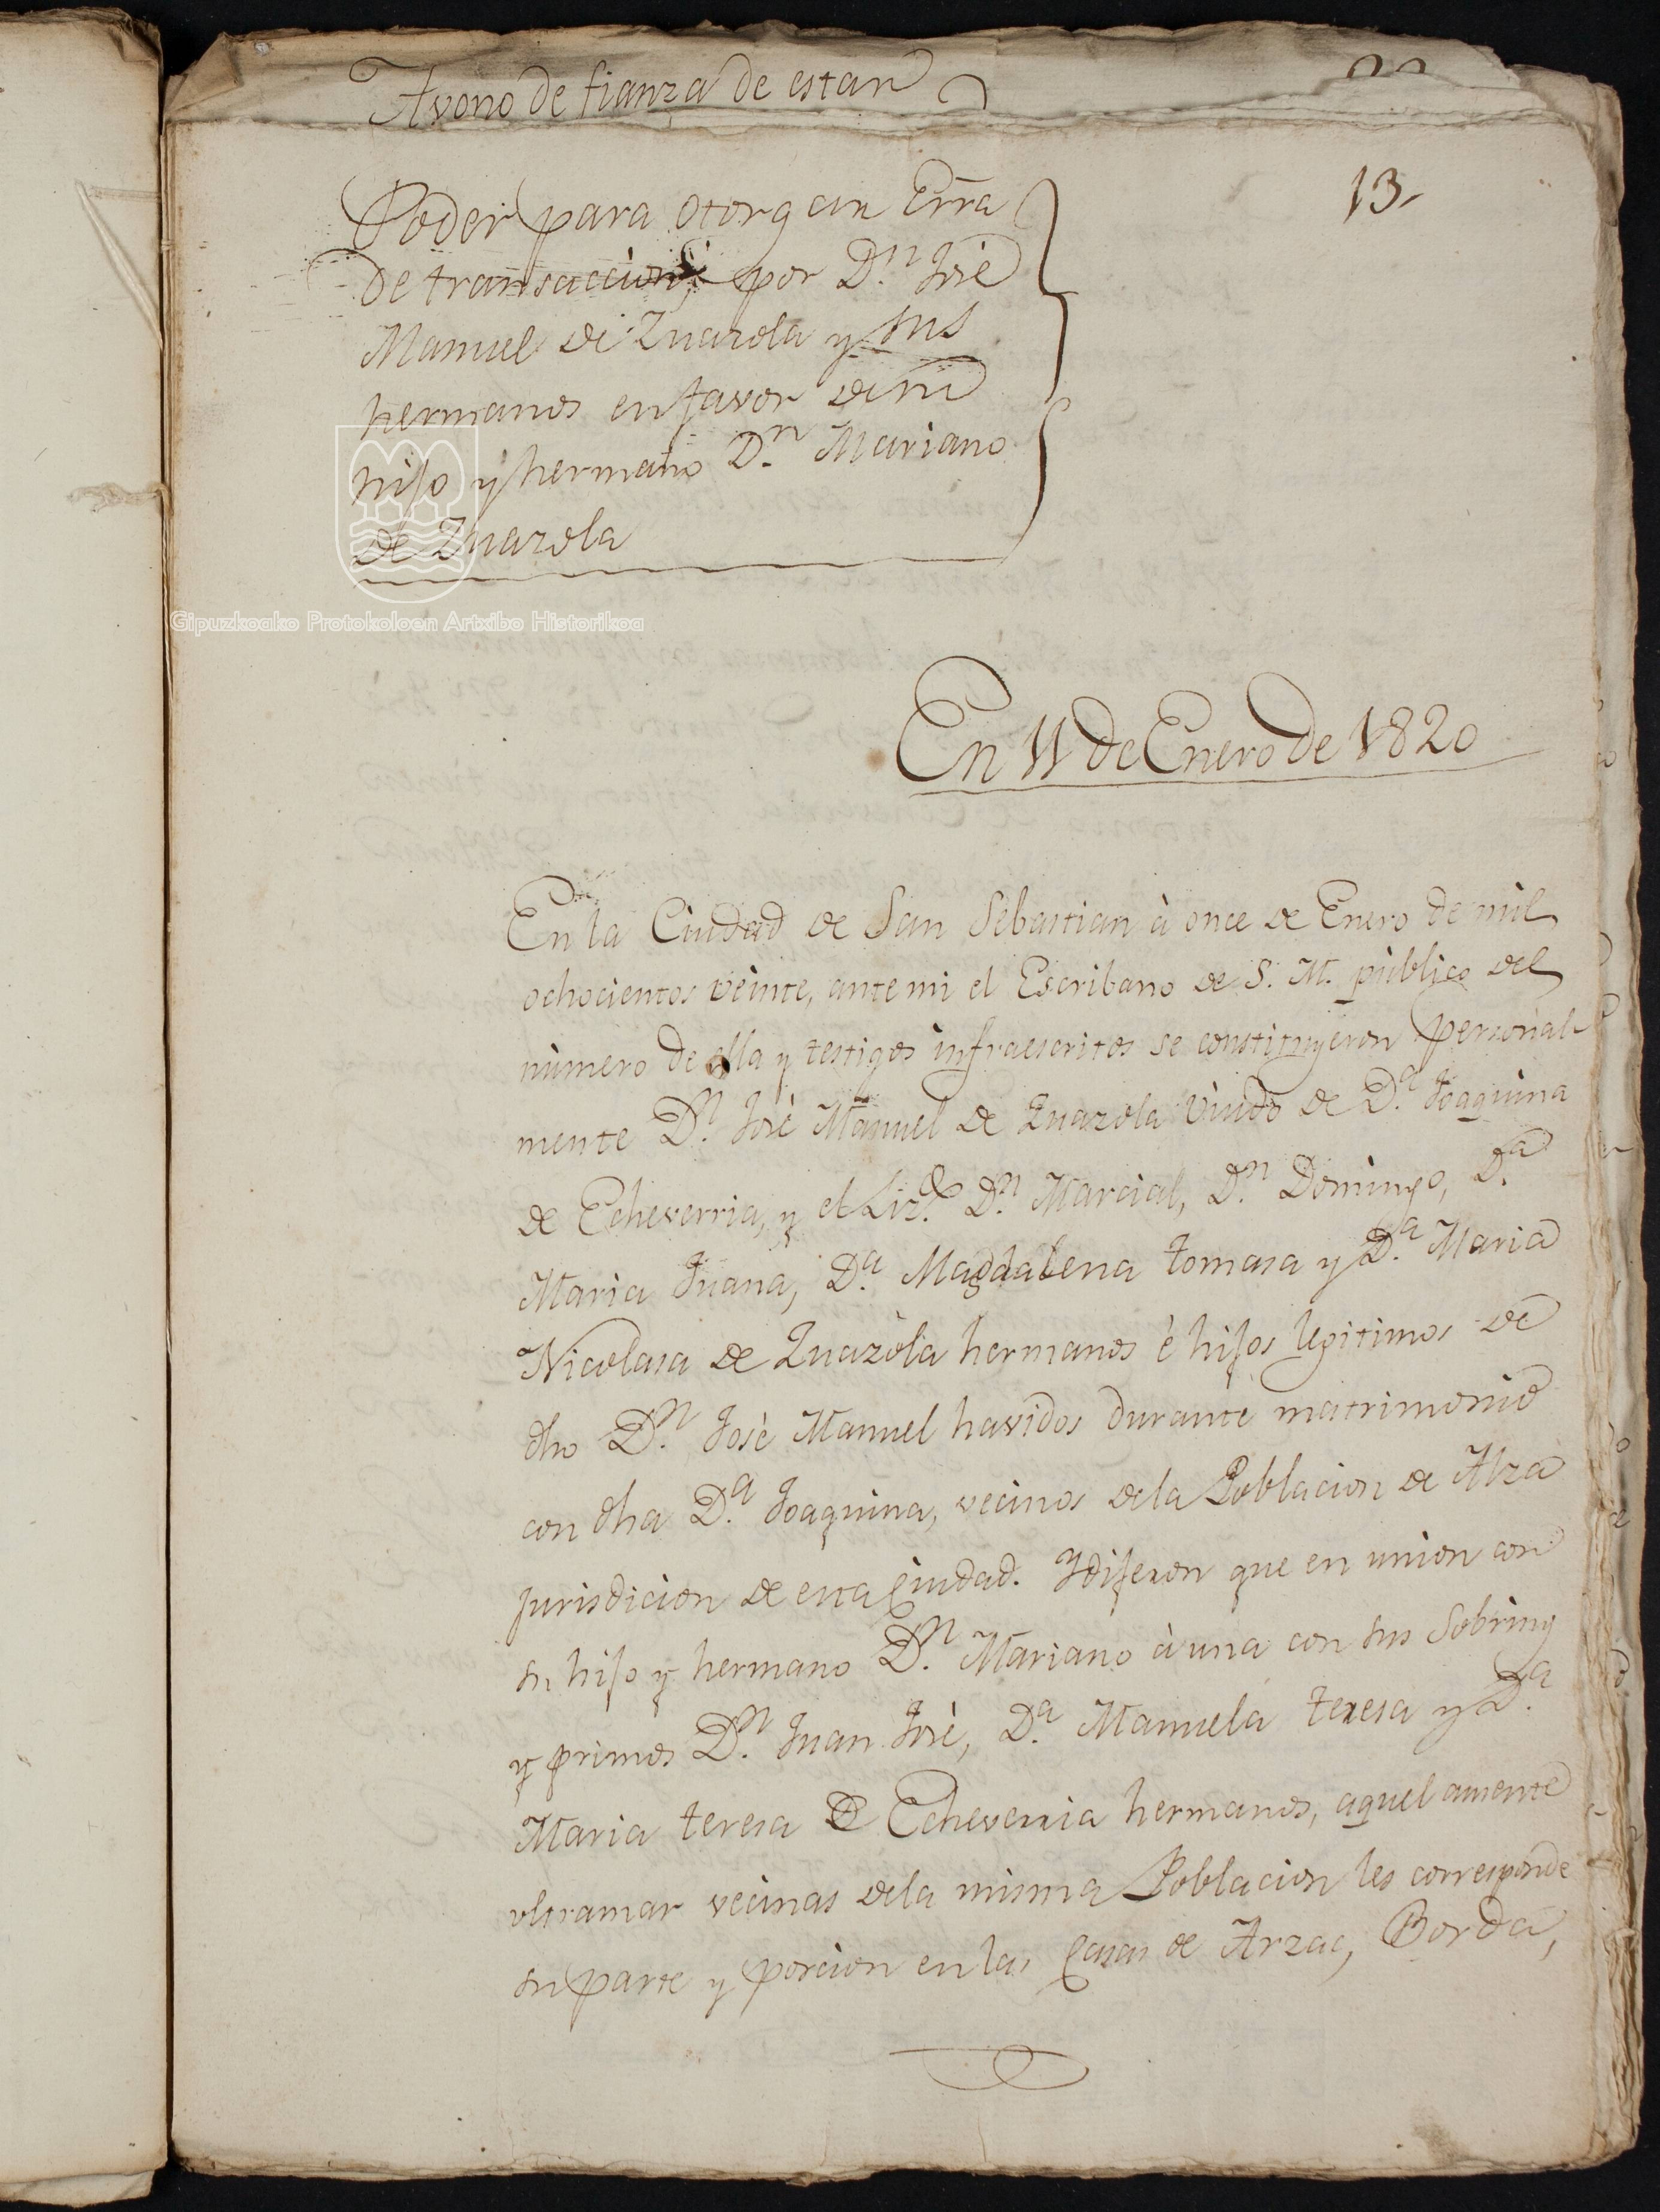 Avono de fianza de estar
13.
Poder para otorgar Erra
de transaccion, por Dn. José
Manuel de Zuazola y sus
hermanos en favor de su
hijo y hermano Dn. Mariano
de Zuazola
Gipuzkoako Protokoloen Artxibo Historikoa
En 11 de Enero de 1820
En la Ciudad de San Sebastian à once de Enero de mil
ochocientos veinte, ante mi el Escribano de S. M. público del
número de ella y testigos infraescritos se constituyeron personal-
mente Dn. José Manuel de Zuazola viudo de Da. Joaquina
de Echeverria, y el Lizdo. Dn. Marcial, Dn. Domingo, Da.
Maria Juana, Da. Magdalena tomasa y Da. Maria
Nicolasa de Zuazola hermanos è hijos legitimos de
dho Dn. José Manuel havidos durante matrimonio
con dha Da. Joaquina, vecinos dela Poblacion de Alza
jurisdicion de esta Ciudad. Y dijeron que en union con
su hijo y hermano Dn. Mariano à una con sus Sobrinos
y primos Dn. Juan José, Da. Manuela teresa y Da.
Maria teresa de Echeverria hermanos, aquel ausente
ultramar vecinas dela misma Poblacion les corresponde
su parte y porcion en las Casas de Arzac, Borda,